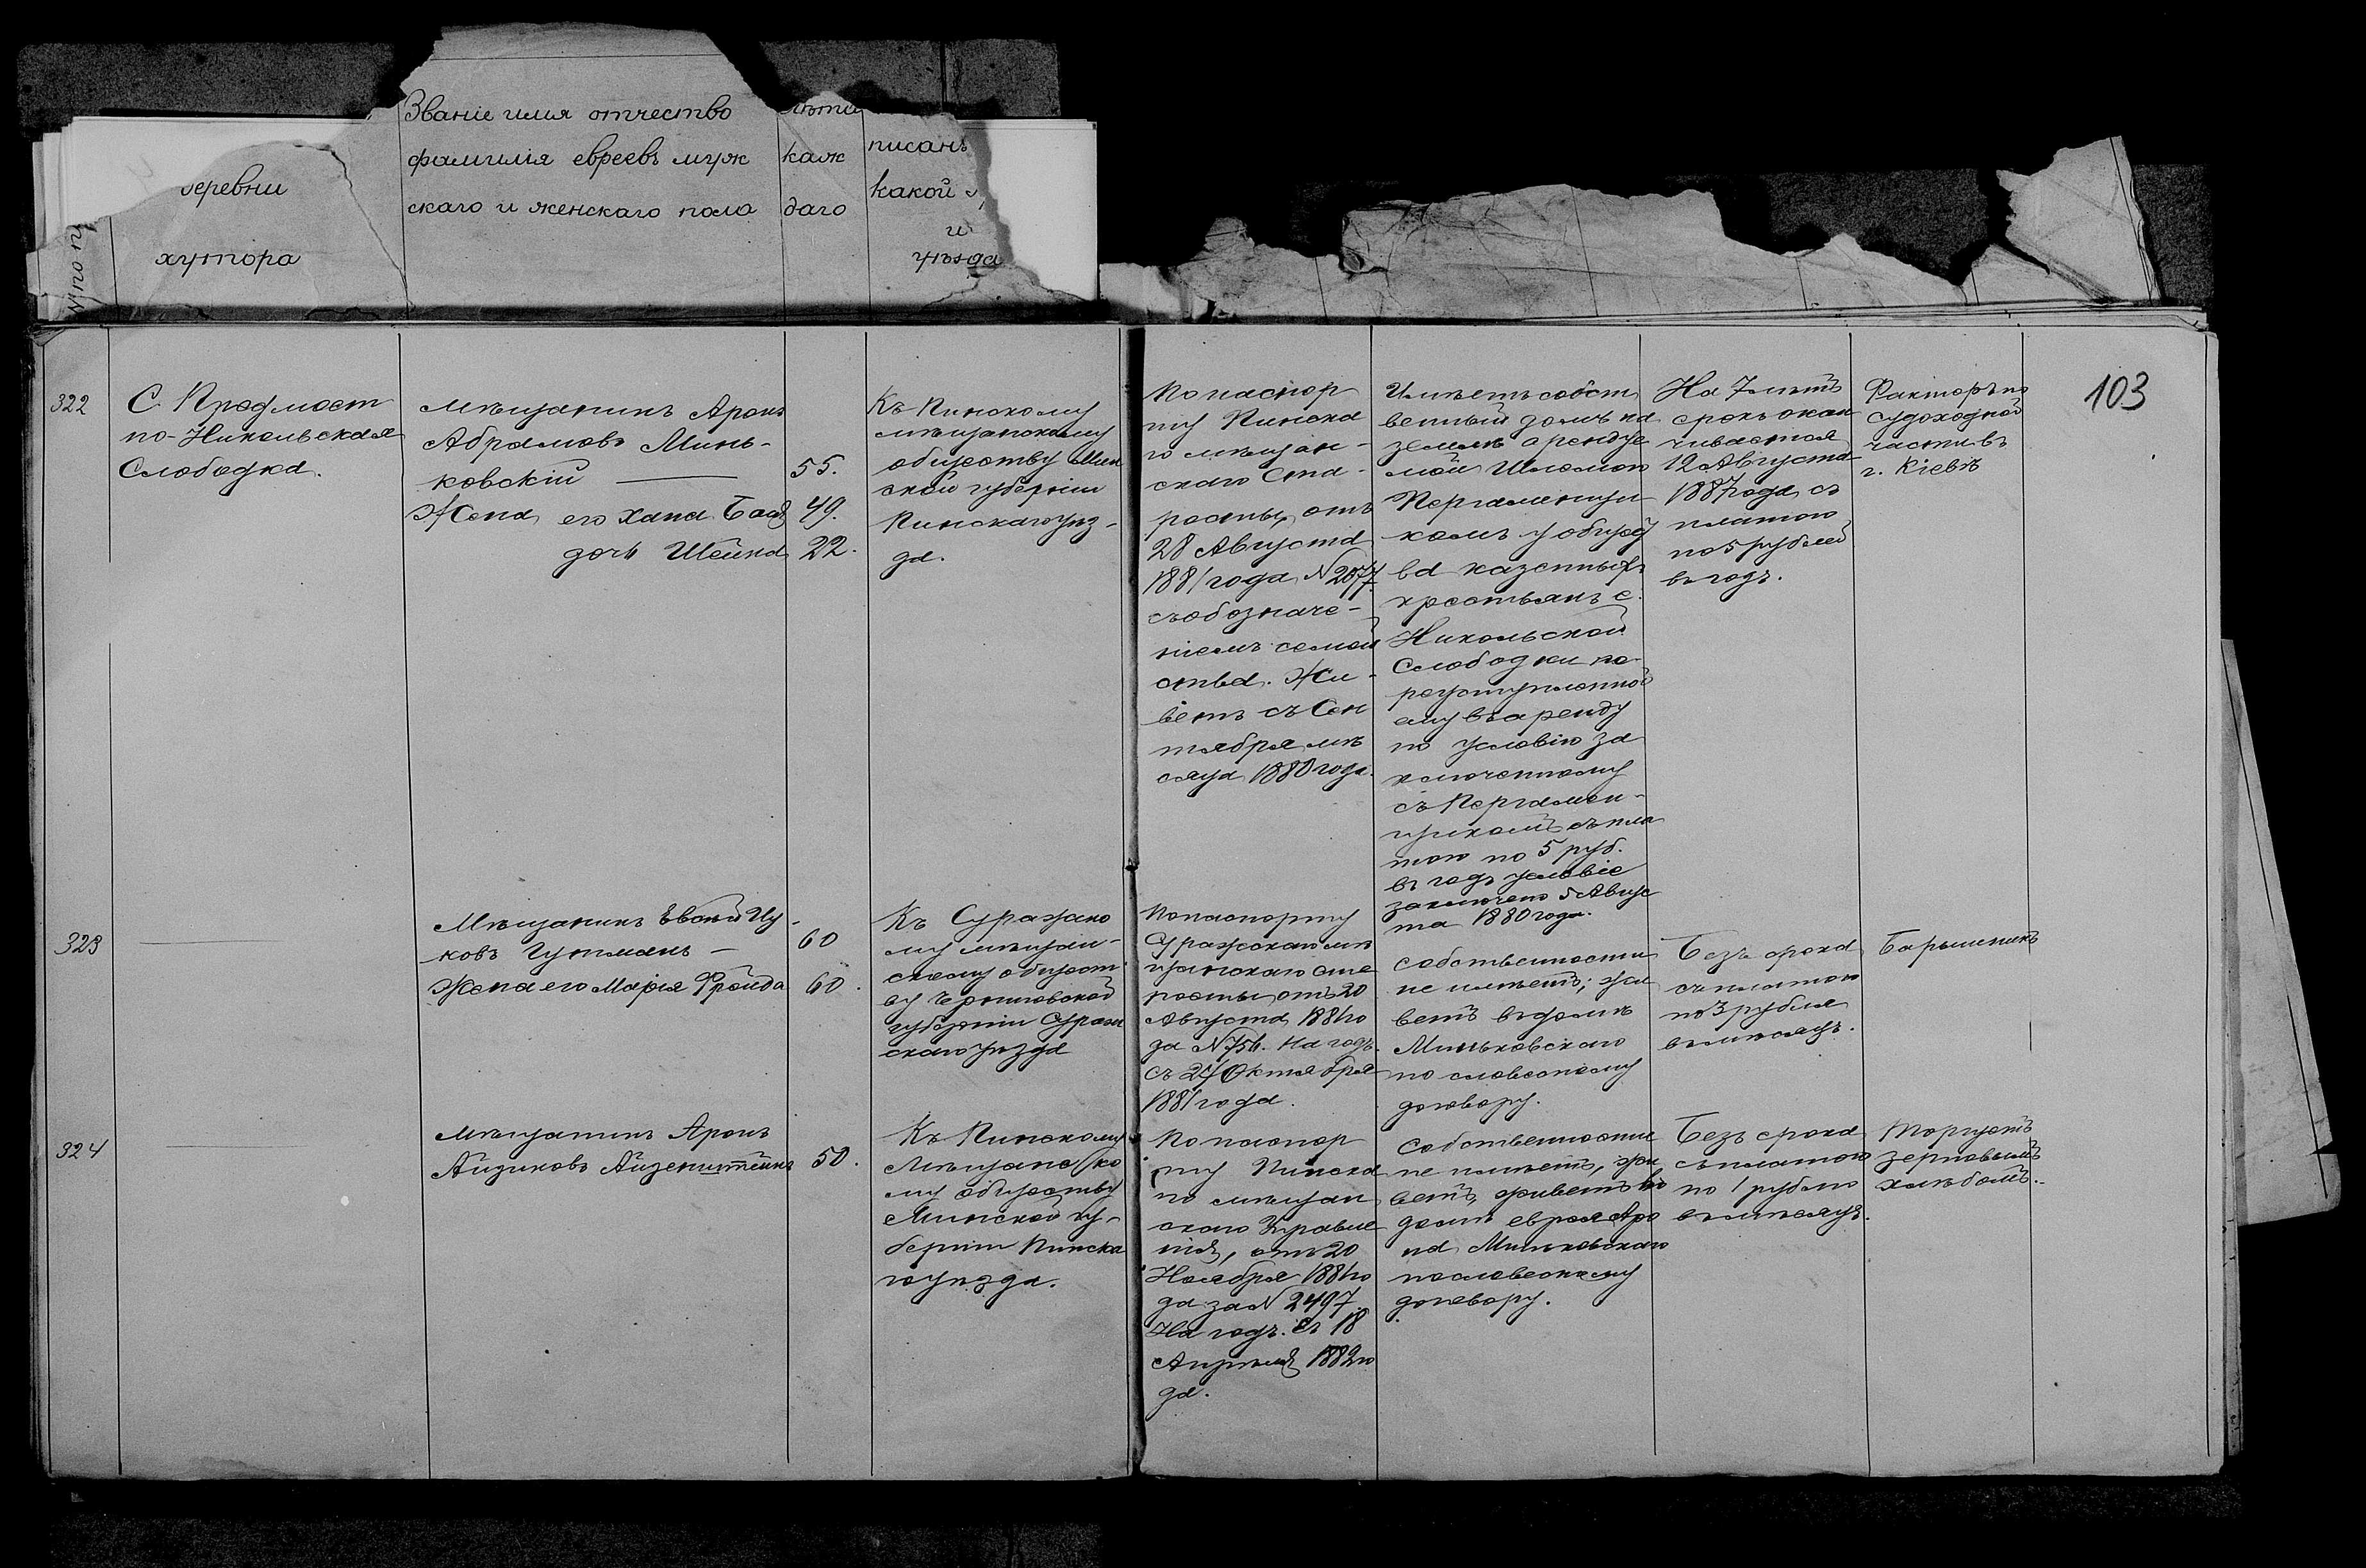 Званіе имя отчество
фамилія евреевъ муж
скаго и женскаго пола
лѣта
каж
даго
писанъ
какой
и
уѣзда
деревни
хутора
103
322
С. Предмост
но-Никольская
Слободка.
Мѣщанинъ Аронъ
Абрамовъ Минь-
ковскій
Жена его Хана Бася
дочь Шейна
55.
49.
22.
Къ Пинскому
мѣщанскому
обществу Мин
ской губерніи
Пинскаго уѣз-
да.
По паспор
ту Пинска
го мѣщан-
скаго Ста-
росты, отъ
28 Августа
1881 года, N 2077
съ обозначе-
ніемъ семей
ства. Жи-
ветъ съ Сен
тября мѣ
сяца 1880 года.
Имѣетъ собст
венный домъ на
землѣ арендуе
мой Шлемою
Пергаменщи
комъ у общес
ва казенныхъ
крестьянъ с.
Никольской
Слободки пе-
реуступленной
ему въ аренду
по условію за
ключенному
съ Пергамен-
щикомъ съ пла
тою по 5 руб.
въ годъ условіе
заключено 5 Авгус
та 1880 года.
На 7 лѣтъ
срокъ окан
чивается
12 Августа
1887 года, съ
платою
по 5 рублей
въ годъ.
Факторъ по
судоходной
части въ
г. Кіевѣ
323
Мѣщанинъ Евсей Иц
ковъ Гутманъ —
Жена его Марія Фрейда
60
60.
Къ Суражско
му мѣщан-
скому общест
ву Черниговской
губерніи Сураж
скаго уѣзда
По паспорту
Суражскаго мѣ
щанскаго ста
росты, отъ 20
Августа 1881 го
да N 756. на годъ.
съ 24 Октября
1881 года.
собственности
не имѣетъ; жи
ветъ въ домѣ
Миньковскаго
по словесному
договору.
Безъ срока
съ платою
по 3 рубля
въ мѣсяцъ.
Барышникъ
324
Мѣщанинъ Аронъ
Айзиковъ Айзенштейнъ
50.
Къ Пинскому
Мѣщанско
му обществу
Минской гу-
берніи Пинска
го уѣзда.
По паспор
ту Пинска
го мѣщан
скаго Управле
нія, отъ 20
Ноября 1881 го
да за N 2497
на годъ. съ 18
Апрѣля 1882 го
да.
Собственности
не имѣетъ, жи
ветъ, живетъ въ
домѣ еврея Аро
на Миньковскаго
по словесному
договору.
Безъ срока
съ платою
по 1 рублю
въ мѣсяцъ.
Торгуетъ
зерновымъ
хлѣбомъ.